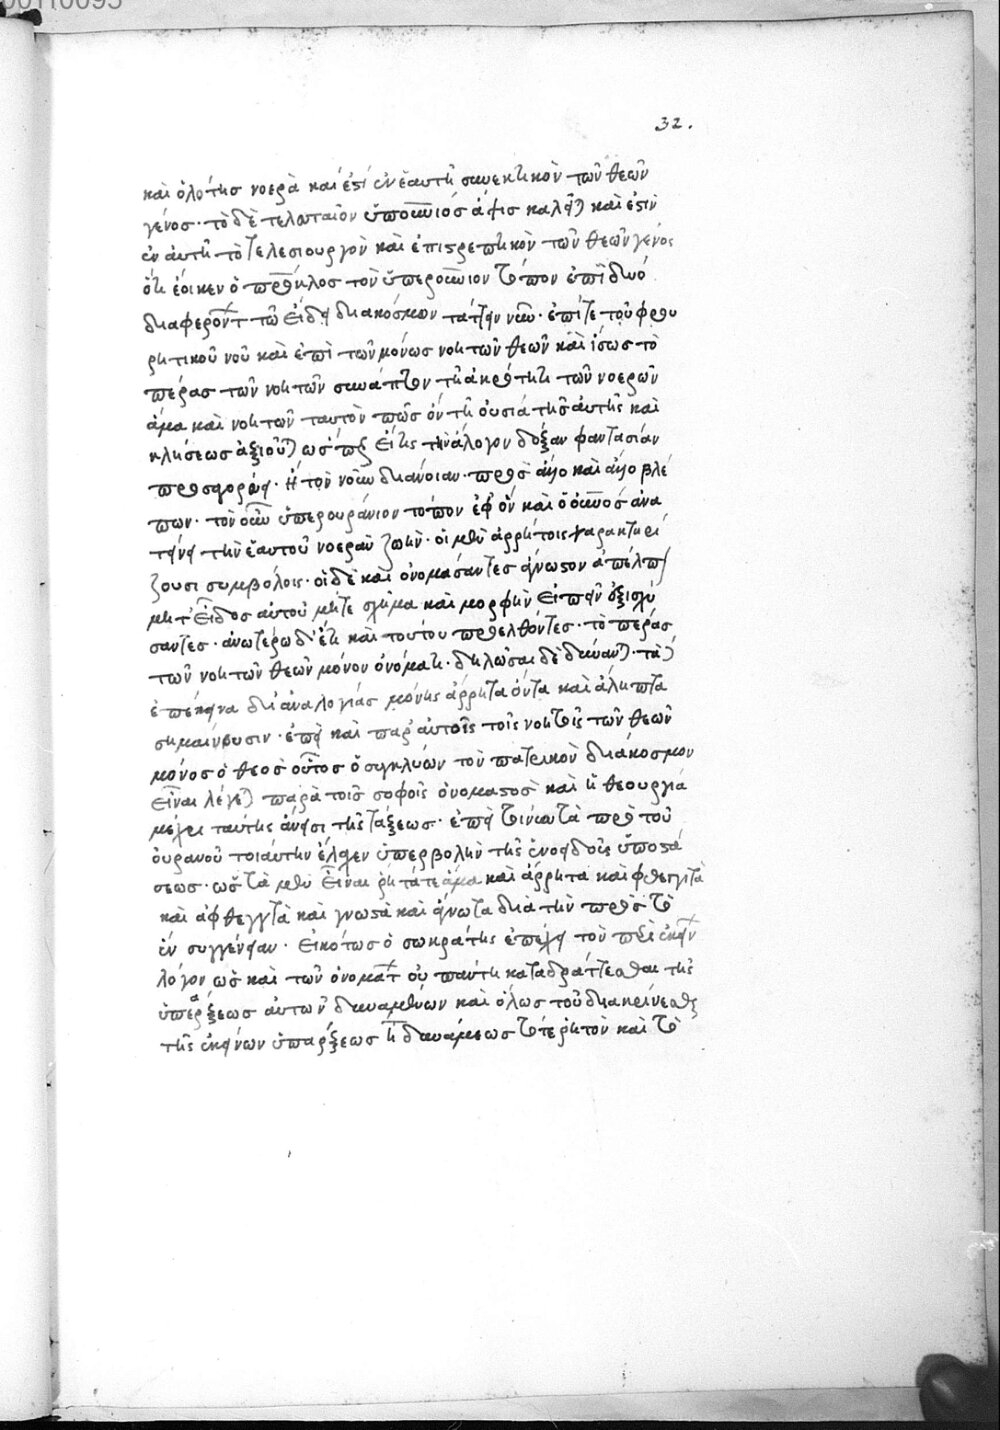 32.
καὶ ὁλότησ νοερὰ καί ἐστί ἐν ἑαυτῆ συνεκτικὸν τῶν θεῶν
γένοσ· τὸ δὲ τελευταῖον ὑπουράνιόσ ἁψισ καλεῖται καὶ ἐστὶν
ἐν αὐτῆ τὸ τελεσιουργὸν καὶ ἐπιστρεπτικὸν τῶν θεῶν γένοσ
ὅτι ἔοικεν ὁ πρόκλοσ τὸν ὑπερουράνιον τόπον ἐπὶ δυό
διαφερόντων τῶ εἴδει διακόσμων τάττειν νῦν· ἐπί τε τοῦ φρου
ρητικοῦ νοῦ καὶ ἐπὶ τῶν μόνωσ νοητῶν θεῶν καὶ ἴσωσ τὸ
πέρασ τῶν νοητῶν συνάπτον τῆ ἀκρότητι τῶν νοερῶν
ἅμα καὶ νοητῶν ταυτὸν πῶσ ὂν τῆ οὐσία τῆσ αὐτῆσ καὶ
κλήσεωσ ἀξιοῦται ὡσπερ εἴ τισ τὴν ἄλογον δόξαν φαντασίαν
προσαγορεύει· ἢ τὸν νοῦν διάνοιαν· πρὸσ ἄλλο καὶ ἄλλο βλέ
πων· τὸν οὖν ὑπερουράνιον τόπον ἐφ ὃν καὶ ὁ οὐρανόσ ἀνα
τείνει τὴν ἑαυτοῦ νοερὰν ζωὴν· οἱ μὲν ἀρρήτοισ χαρακτηρί
ζουσι συμβόλοισ· οἱ δὲ καὶ ὀνομάσαντεσ ἄγνωστον ἀπέλιπον
μήτ εἶδοσ αὐτοῦ μήτε σχῆμα καὶ μορφὴν εἰπεῖν ἐξισχύ
σαντεσ· ἀνωτέρω δ' ἔτι καὶ τουτου προελθόντεσ· τὸ πέρασ
τῶν νοητῶν θεῶν μόνον ὀνόματι· δηλῶσαι δεδύνανται· τὰ δ'
ἐπέκεινα δι' ἀναλογίασ μόνησ ἄρρητα ὄντα καὶ ἄληπτα
σημαίνουσιν· ἐπεὶ καὶ παρ' αὐτοῖσ τοῖσ νοητοῖσ τῶν θεῶν
μόνοσ ὁ θεοσ οὗτοσ ὁ συγκλείων τὸν πατρικὸν διάκοσμον
εἶναι λέγεται παρὰ τοῖσ σοφοῖσ ὀνομαστὸσ καὶ ἡ θεουργία
μέχρι ταύτησ ἄνεισι τῆσ τάξεωσ· ἐπεὶ τοίνυν τὰ πρὸ τοῦ
οὐρανοῦ τοιαύτην ἔλαχεν ὑπερβολὴν τῆσ ἑνοειδοῦσ ὑποστά
σεωσ· ὥστε τὰ μὲν εἶναι ρητά τε ἅμα καὶ ἄρρητα καὶ φθεγκτὰ
καὶ ἀφθεγκτὰ καὶ γνωστὰ καὶ ἄγνωστα διὰ τὴν πρὸσ τὸ
ἓν συγγένειαν· εἰκότωσ ὁ σωκράτησ ἐπέχει τὸν περὶ ἐκείνων
λόγον ὡσ καὶ τῶν ὀνομάτων οὐ παντη καταδράττεσθαι τῆσ
ὑπάρξεωσ αὐτων δυναμένων καὶ ὅλωσ τοῦ διακρίνεσθαι
τῆσ ἐκείνων ὑπαρξεωσ ἢ δυνάμεωσ τό τε ρητὸν καὶ τὸ